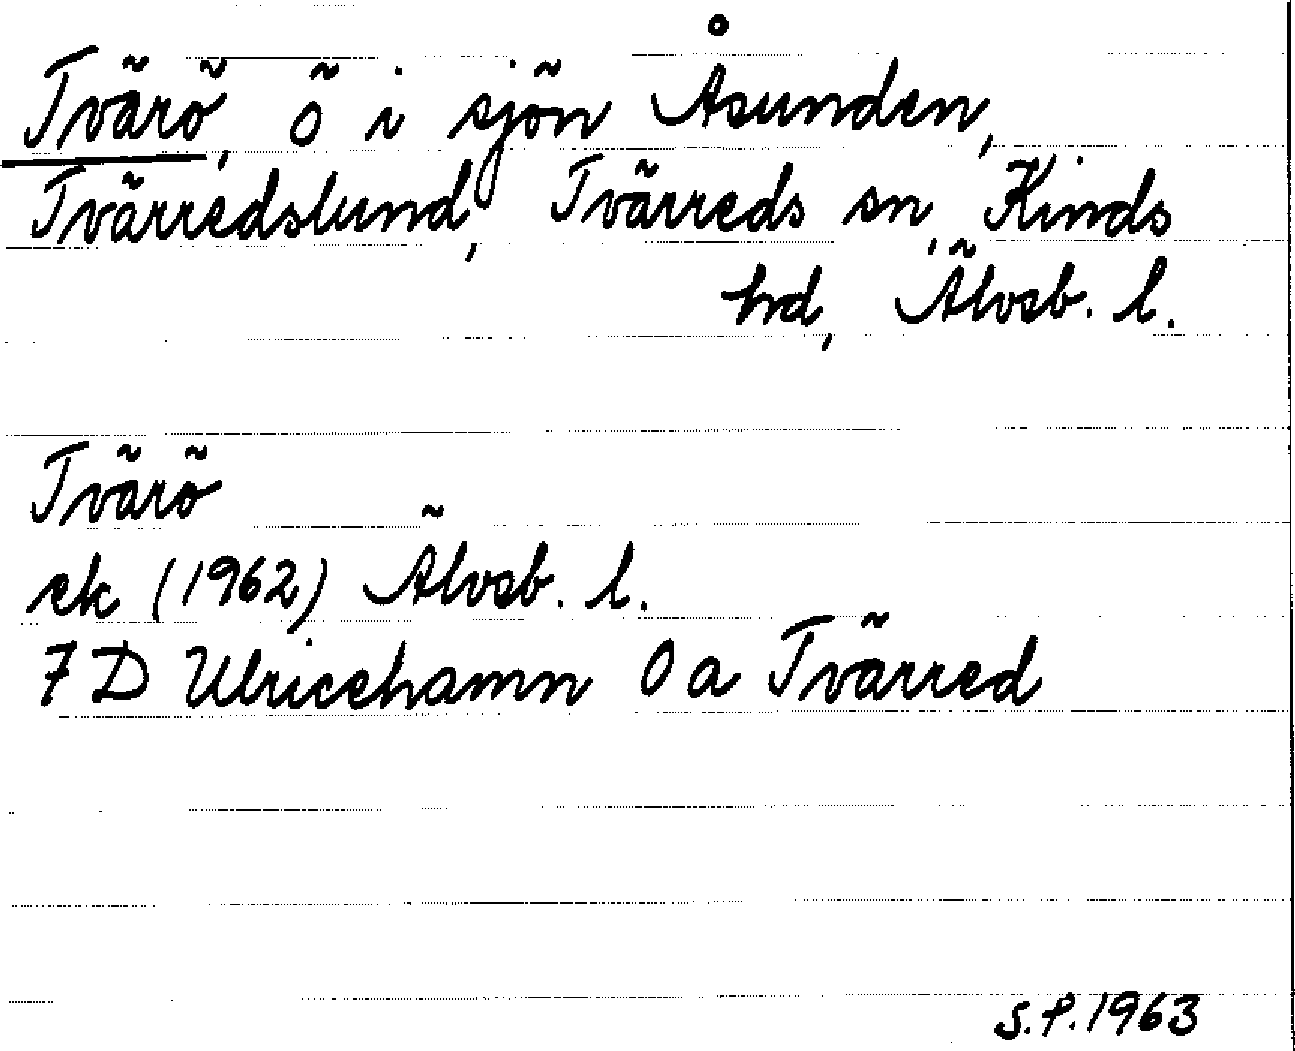 Tvärö, ö i sjön Åsunden,
Tvärredslund, Tvärreds sn, Kinds
hd, Älvsb. l.
Tvärö
ek (1962) Älvsb. l.
7 D Ulricehamn 0 a Tvärred
S.P. 1963